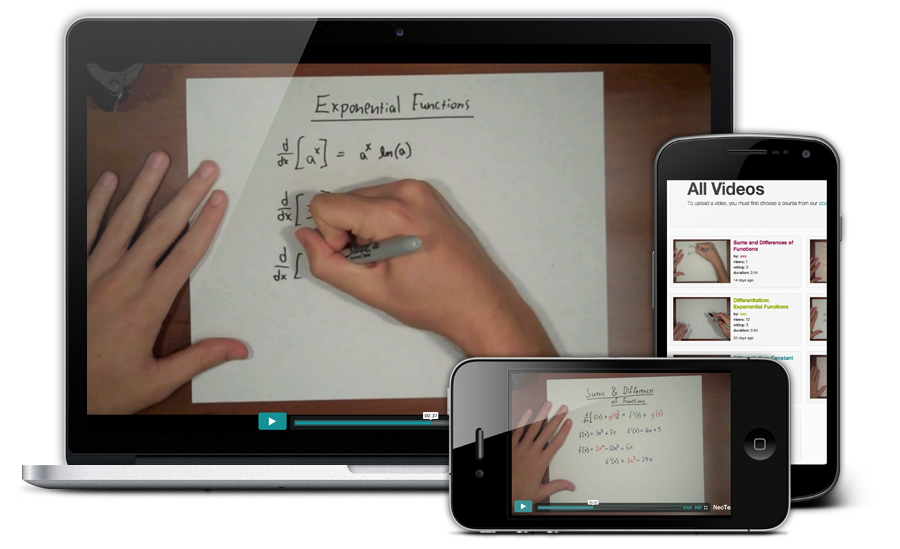 Exponential Functions
d/dx [a^x] = a^x ln(a)
d/dx [
d/dx [
00:37
All Videos
To upload a video, you must first choose a course from our
Sums and Differences of
Functions
by:
views: 1
rating: 3
14 days ago
Differentiation:
Exponential Functions
by:
views: 12
rating: 3
22 days ago
Constant
Sums & Difference
of Functions
d/dx [f(x) + g(x)] = f'(x) + g'(x)
f(x) = 3x² + 5x f'(x) = 6x + 5
HD
NeoTe